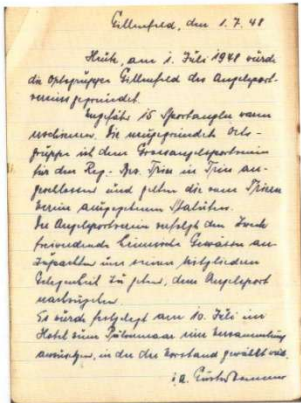 Gillenfeld, den 1.7.48
Heute, am 1. Juli 1948 wurde
die Ortsgruppe Gillenfeld des Angelsport-
vereins gegründet.
Ungefähr 15 Sportangler waren
erschienen. Die neugegründete Orts-
gruppe ist dem Grossangelsportverein
für den Reg. - Bez. Trier in Trier an-
geschlossen und gelten die vom Trierer
Verein ausgegebenen Statuten.
Der Angelsportverein verfolgt den Zweck
heimische Gewässer an-
zupachten und seinen Mitgliedern
Gelegenheit zu geben, dem Angelsport
nachzugehen.
Es wurde festgelegt am 10. Juli im
Hotel zum Pulvermaar eine Versammlung
in der der Vorstand gewählt wird.
i.A.